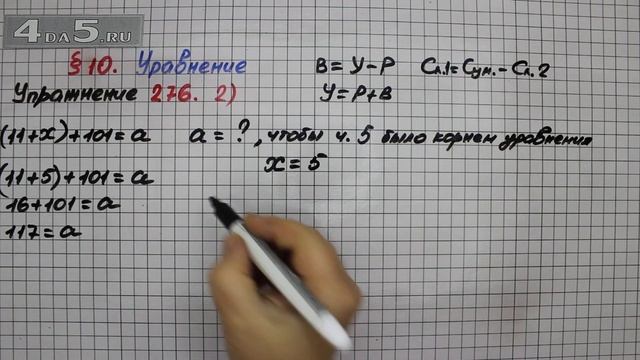 4DA5.RU
§ 10. Уравнение
В = У - Р Сл.1 = Сум. - Сл. 2
Упражнение 276. 2)
У = Р + В
(11 + x) + 101 = a a = ?, чтобы ч. 5 было корнем уравнения
x = 5
(11 + 5) + 101 = a
16 + 101 = a
117 = a